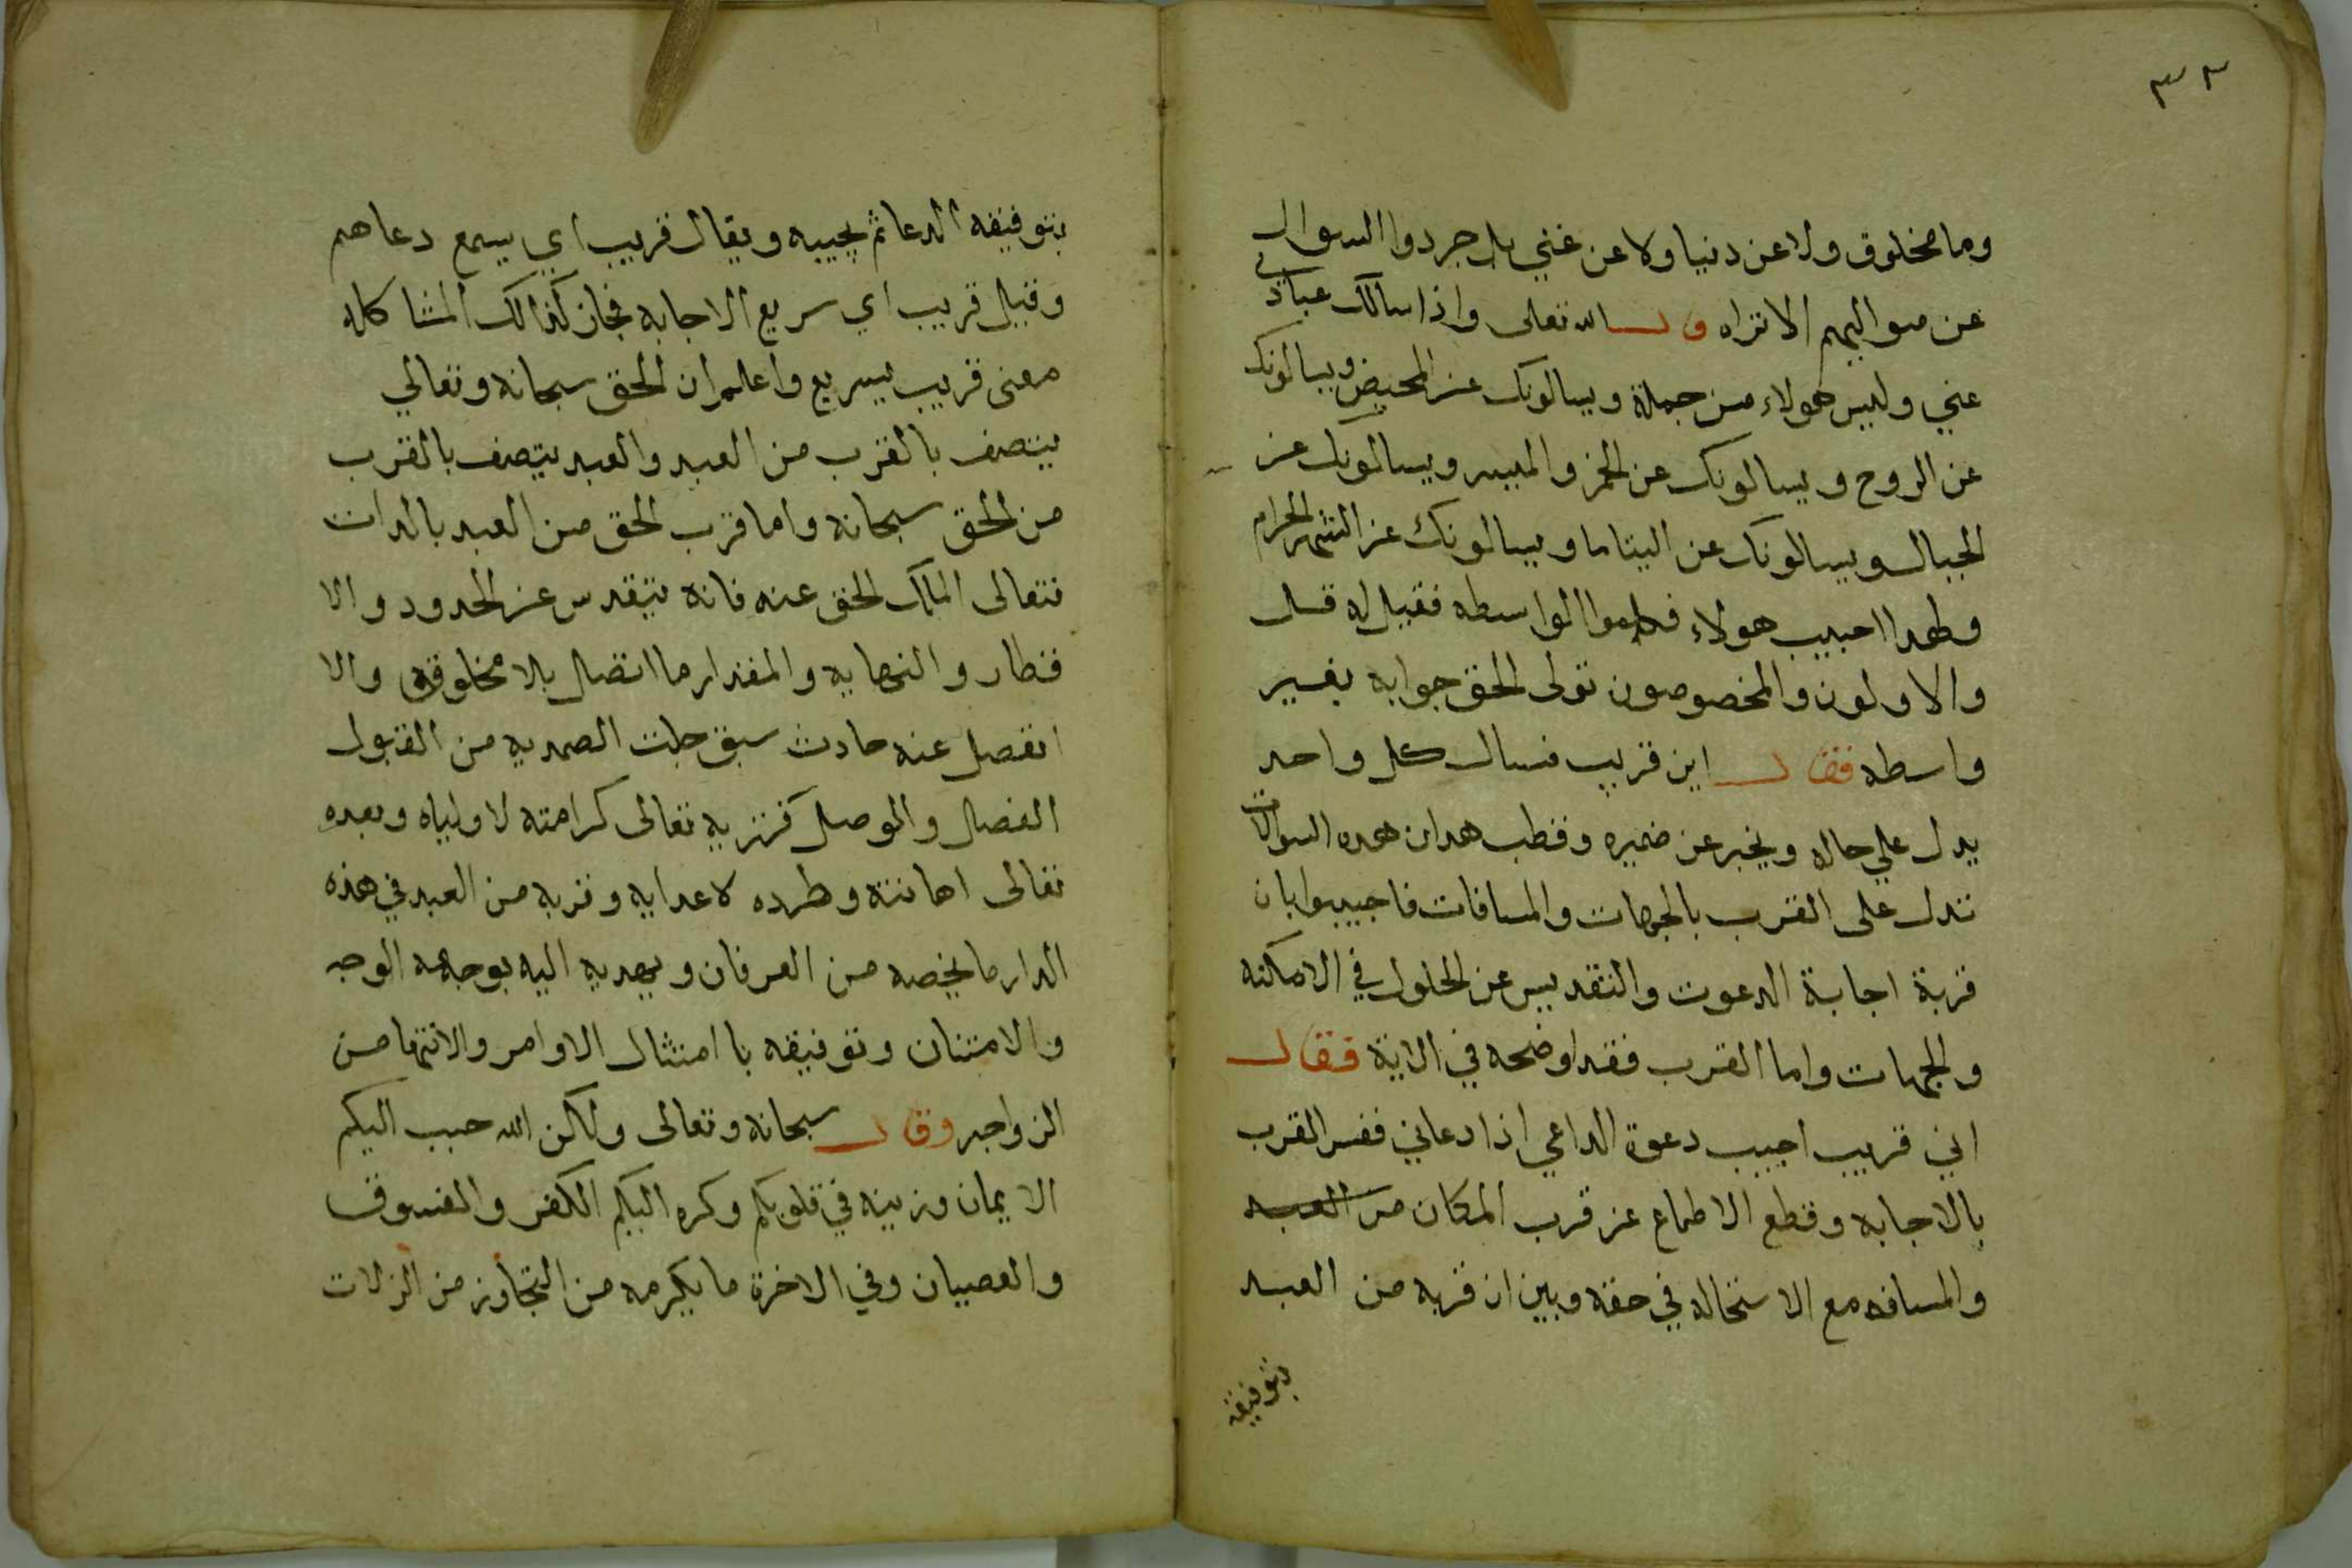 ٣٣
وما مخلوق ولا عن دنيا ولا عن غني بل جردوا السوال
عن مواليهم الا تراه قال الله تعالى واذا سالك عبادي
عني وليس هولاء من جملة ويسالونك عن المحيض ويسالونك
عن الروح ويسالونك عن الخمر والميسر ويسالونك عن
الجبال ويسالونك عن اليتاما ويسالونك عن الشهر الحرام
هولاء الواسطه فقيل له قل
والاولون والمخصوصون تولى الحق جوابه بغير
واسطه فقال اين قريب فسال كل واحد
يدل علي حاله ويخبر عن ضميره وقطب هدان هده السوالات
تدل على القرب بالجهات والمسافات فاجيبوا بان
قربة اجابة الدعوت والتقديس عن الحلول في الامكنه
والجهات واما القرب فقد اوضحه في الاية فقال
اني قريب اجيب دعوة الداعي اذا دعاني ففسر القرب
بالاجابه وقطع الاطماع عن قرب المكان من العبد
والمسافه مع الاستحاله في حقه وبين ان قربه من العبد
بتوفيقه
بتوفيقه الدعا ثم يجيبه ويقال قريب اي يسمع دعاهم
وقيل قريب اي سريع الاجابه فجاز كذالك المشاكله
معنى قريب بسريع واعلم ان الحق سبحانه وتعالي
يتصف بالقرب من العبد والعبد يتصف بالقرب
من الحق سبحانه واما قرب الحق من العبد بالدات
فتعالى الملك الحق عنه فانه متقدس عن الحدود والا
قطار والنهايه والمقدار ما اتصل بلا مخلوقه والا
انفصل عنه حادث سبق جلت الصمديه من القبول
الفصال والوصل فتربه تعالى كرامته لاولياه وبعده
تعالى اهانته وطرده لاعدايه وقربه من العبد في هذه
الدار ما يخصه من العرفان ويهديه اليه بوجهه الوجه
والامتنان وتوفيقه با امتثال الاوامر والانتها من
الزواجر وقال سبحانه وتعالى ولاكن الله حبب اليكم
الايمان وزينه في قلوبكم وكره اليكم الكفر والفسوق
والعصيان وفي الاخرة ما يكرمه من التجاوز من الزلات